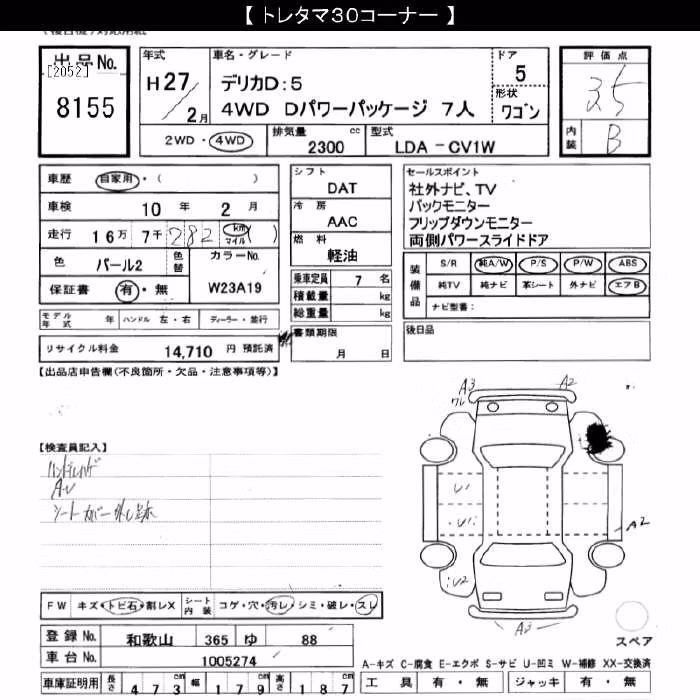 【 トレタマ30コーナー 】
出品No.
[2052]
8155
年式
H 27/2月
車名・グレード
デリカD:5
4WD Dパワーパッケージ 7人
ドア
5
形状
ワゴン
評価点
3.5
内装
B
2WD・4WD
排気量
2300 cc
型式
LDA - CV1W
車歴
自家用・( )
車検
10 年 2 月
走行
16万 7千 282 km マイル ( )
色
パール2
色替
カラーNo.
W23A19
保証書
有・無
シフト
DAT
冷房
AAC
燃料
軽油
乗車定員 7 名
積載量 kg
総重量 kg
セールスポイント
社外ナビ、TV
バックモニター
フリップダウンモニター
両側パワースライドドア
装備品
S/R 純A/W P/S P/W ABS
純TV 純ナビ 革シート 外ナビ エアB
ナビ型番:
モデル年式 年 ハンドル 左・右 ディーラー・並行
リサイクル料金 14,710 円 預託済
書類期限
月 日
後日品
【出品店申告欄(不良箇所・欠品・注意事項等)】
【検査員記入】
A3
A2
U1
U1
U2
A2
A3
スペア
FW キズ・トビ石・割レX
シート内装 コゲ・穴・汚レ・シミ・破レ・スレ
登録No. 和歌山 365 ゆ 88
車台No. 1005274
A-キズ C-腐食 E-エクボ S-サビ U-凹ミ W-補修 XX-交換済
車庫証明用 長さ 473 cm 幅 179 cm 高さ 187 cm
工具 有・無 ジャッキ 有・無